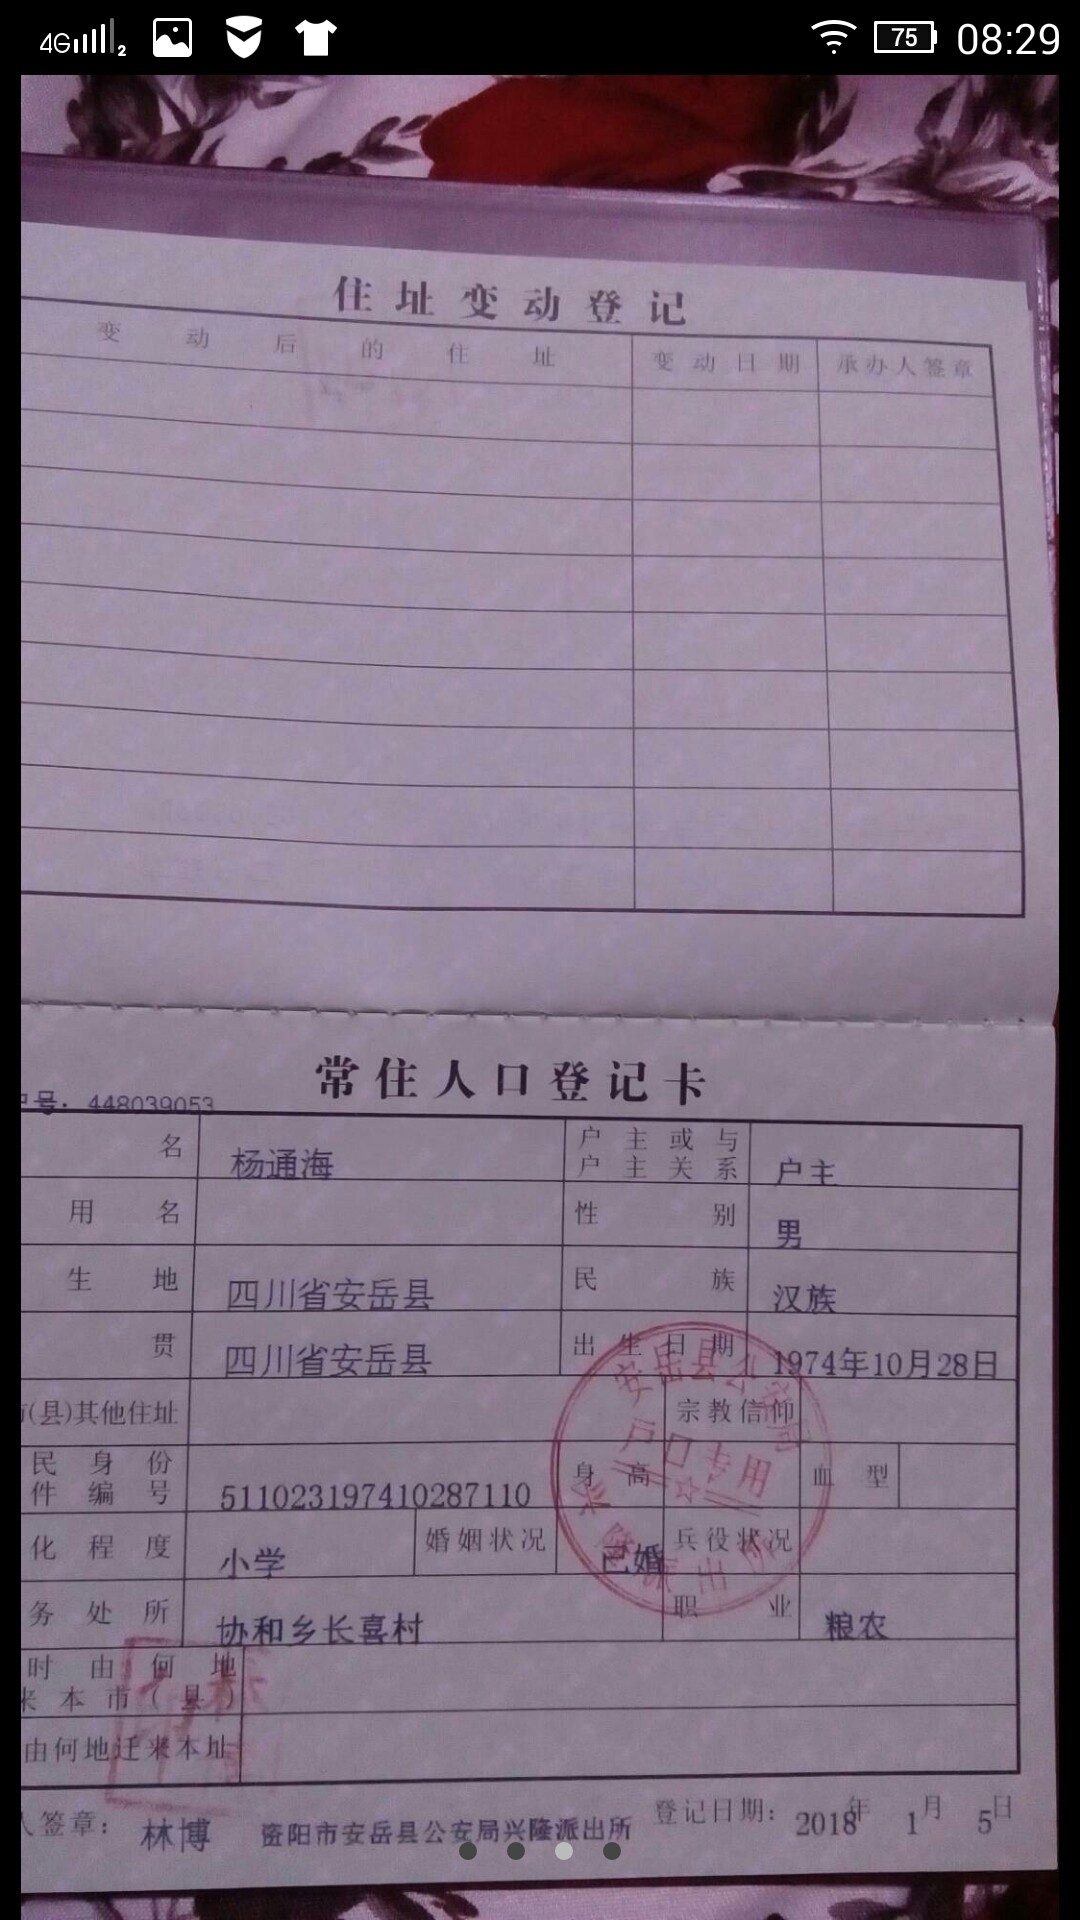 4G 2 75 08:29
住址变动登记
变动后的住址 变动日期 承办人签章
常住人口登记卡
号：448039053
名 杨通海 户主或与户主关系 户主
用名 性别 男
生地 四川省安岳县 民族 汉族
贯 四川省安岳县 出生日期 1974年10月28日
(县)其他住址 宗教信仰
民身份件编号 511023197410287110 身高 血型
化程度 小学 婚姻状况 已婚 兵役状况
务处所 协和乡长喜村 职业 粮农
时由何地来本市(县)
由何地迁来本址
人签章： 林博 资阳市安岳县公安局兴隆派出所 登记日期：2018年1月5日
安岳县公安局
户口专用
兴隆派出所